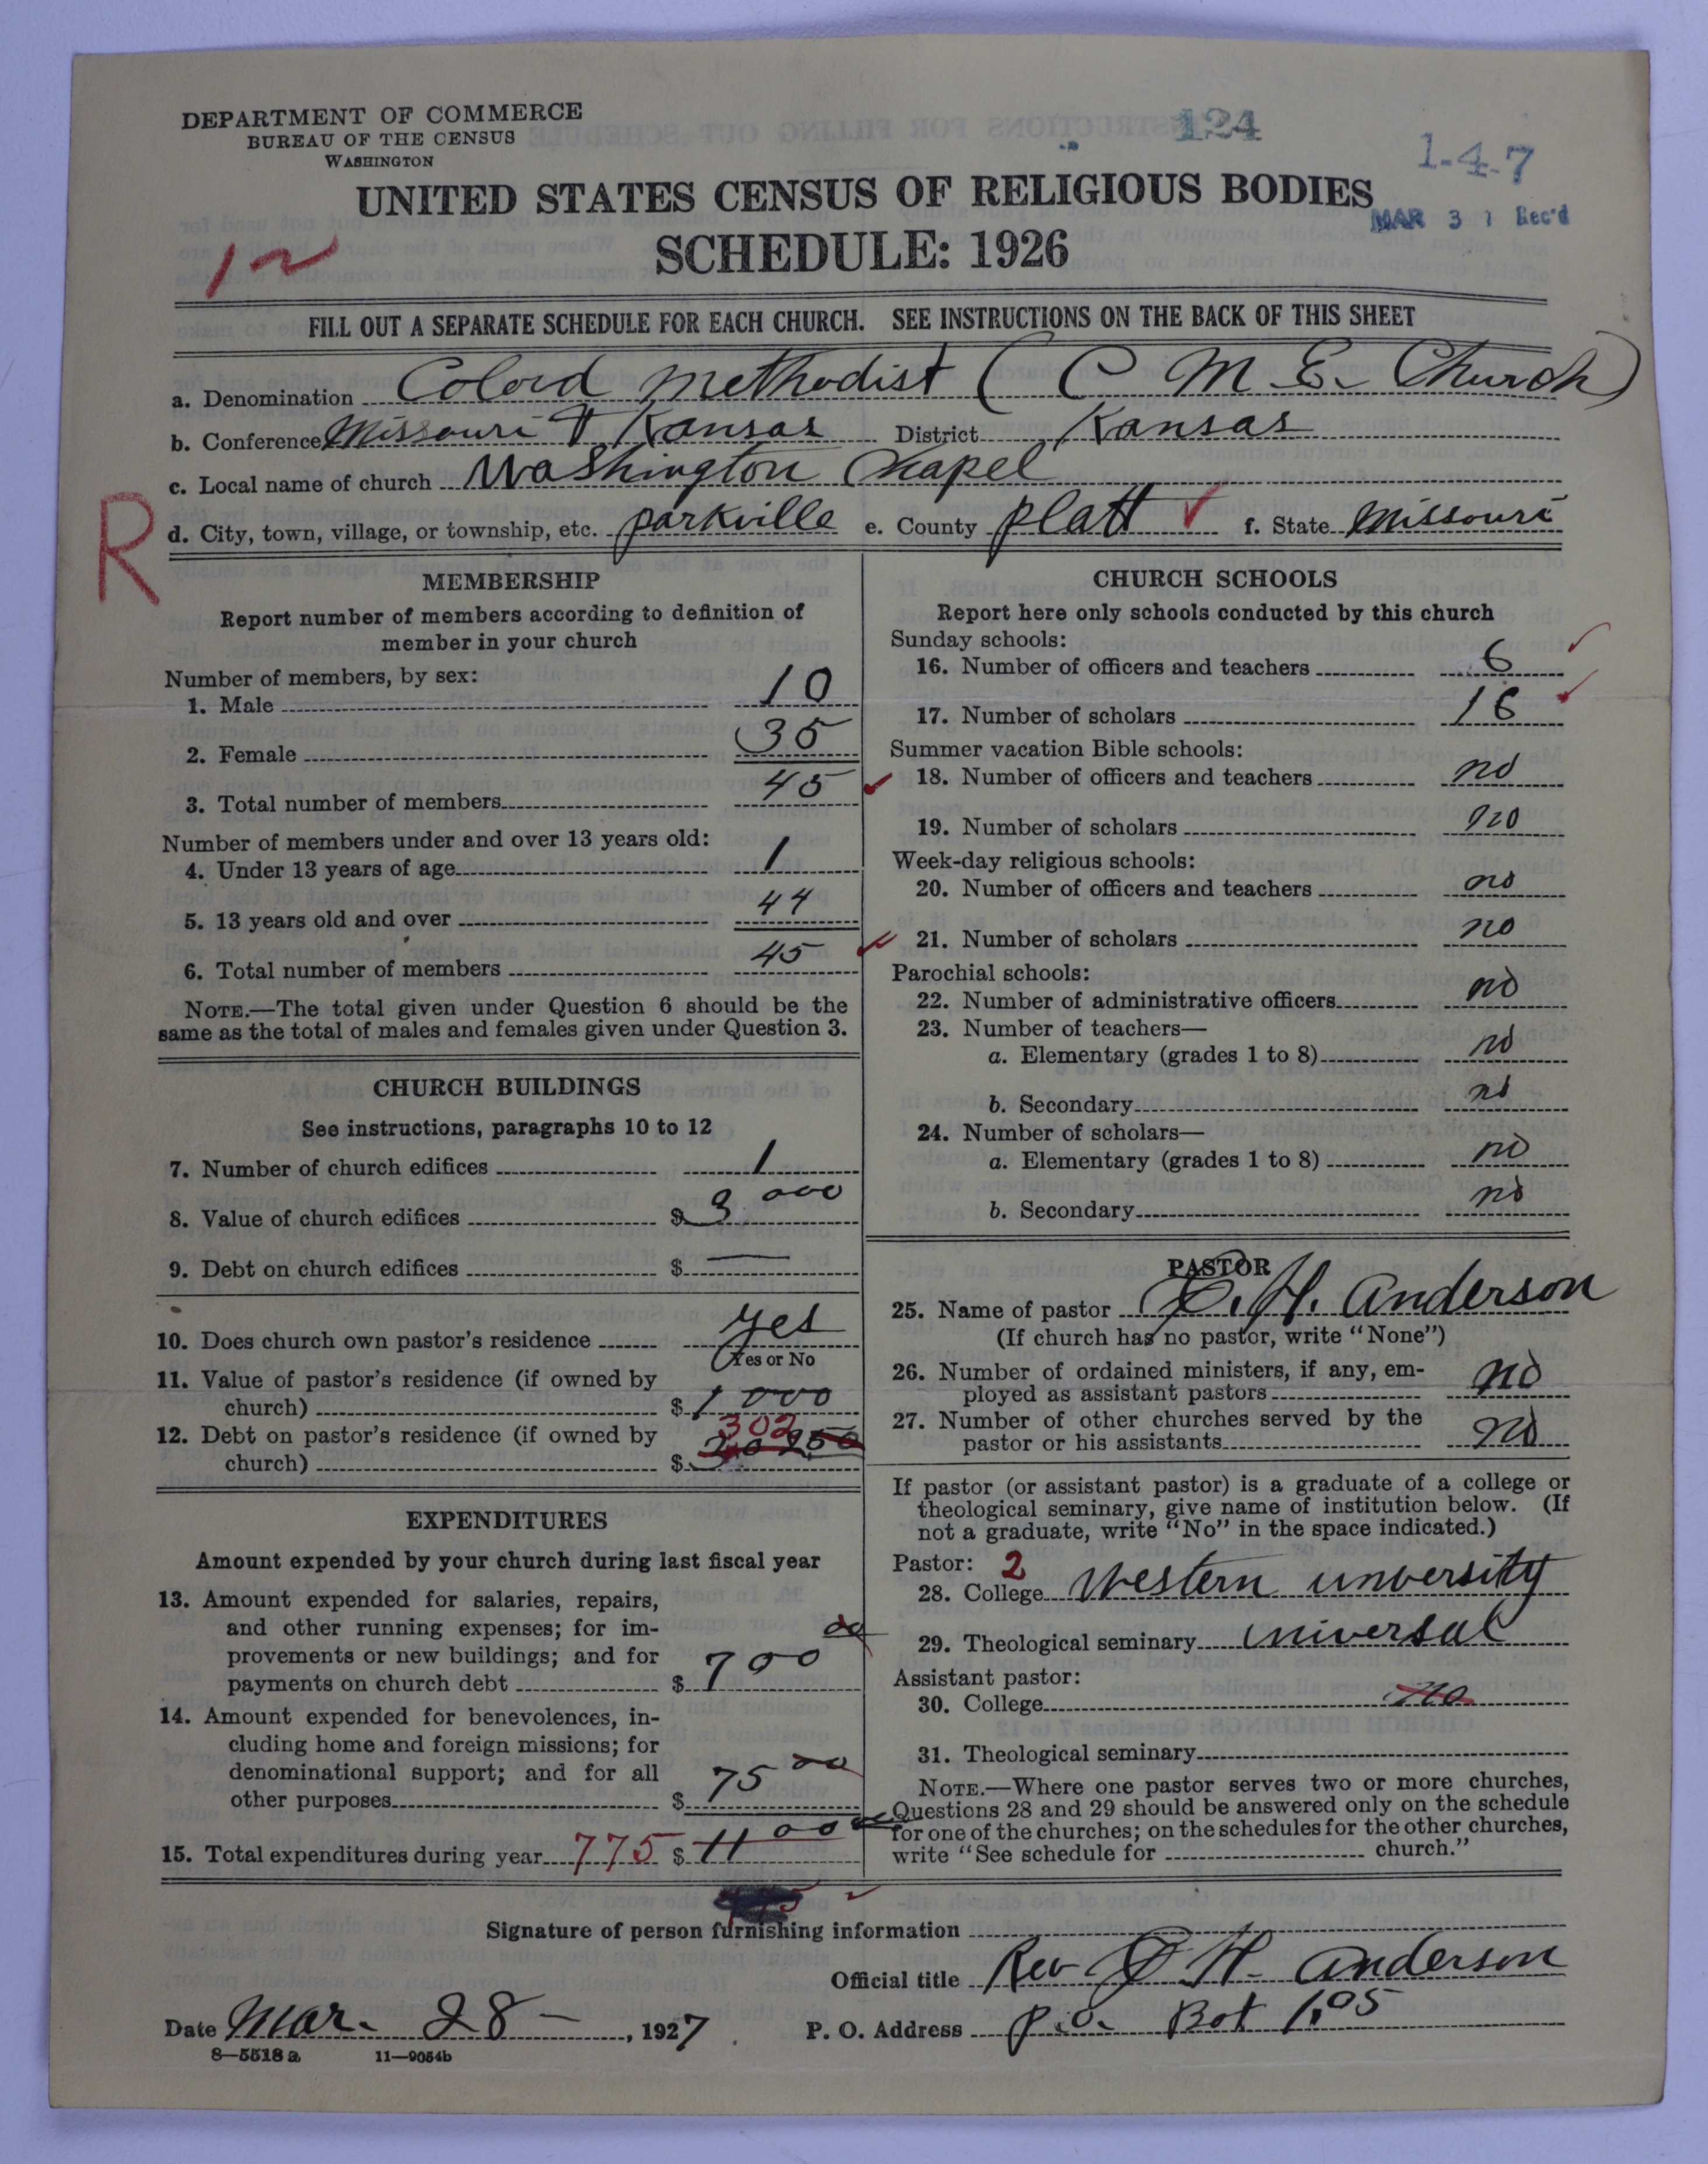 DEPARTMENT OF COMMERCE
BUREAU OF THE CENSUS
WASHINGTON
124
1-4-7
UNITED STATES CENSUS OF RELIGIOUS BODIES
MAR 31 Rec'd
SCHEDULE: 1926
FILL OUT A SEPARATE SCHEDULE FOR EACH CHURCH. SEE INSTRUCTIONS ON THE BACK OF THIS SHEET
a. Denomination Colord Methodist (C M E. Church)
b. Conference Missouri & Kansas District Kansas
c. Local name of church Washington Chapel
R
d. City, town, village, or township, etc. parkville e. County platt f. State Missouri
MEMBERSHIP
Report number of members according to definition of
member in your church
Number of members, by sex:
1. Male 10
2. Female 35
3. Total number of members 45
Number of members under and over 13 years old:
4. Under 13 years of age 1
5. 13 years old and over 44
6. Total number of members 45
NOTE.—The total given under Question 6 should be the
same as the total of males and females given under Question 3.
CHURCH BUILDINGS
See instructions, paragraphs 10 to 12
7. Number of church edifices 1
8. Value of church edifices $ 3 000
9. Debt on church edifices $ —
10. Does church own pastor's residence yes
Yes or No
11. Value of pastor's residence (if owned by
church) $ 1 000
302
12. Debt on pastor's residence (if owned by
church) $
EXPENDITURES
Amount expended by your church during last fiscal year
13. Amount expended for salaries, repairs,
and other running expenses; for im-
provements or new buildings; and for
payments on church debt $ 700 00
14. Amount expended for benevolences, in-
cluding home and foreign missions; for
denominational support; and for all
other purposes $ 75 00
15. Total expenditures during year 775 $ 11 00
CHURCH SCHOOLS
Report here only schools conducted by this church
Sunday schools:
16. Number of officers and teachers 6
17. Number of scholars 16
Summer vacation Bible schools:
18. Number of officers and teachers no
19. Number of scholars no
Week-day religious schools:
20. Number of officers and teachers no
21. Number of scholars no
Parochial schools:
22. Number of administrative officers no
23. Number of teachers—
a. Elementary (grades 1 to 8) no
b. Secondary no
24. Number of scholars—
a. Elementary (grades 1 to 8) no
b. Secondary no
PASTOR
25. Name of pastor H. Anderson
(If church has no pastor, write "None")
26. Number of ordained ministers, if any, em-
ployed as assistant pastors no
27. Number of other churches served by the
pastor or his assistants no
If pastor (or assistant pastor) is a graduate of a college or
theological seminary, give name of institution below. (If
not a graduate, write "No" in the space indicated.)
Pastor: 2
28. College Western unversity
29. Theological seminary universal
Assistant pastor:
30. College no
31. Theological seminary
NOTE.—Where one pastor serves two or more churches,
Questions 28 and 29 should be answered only on the schedule
for one of the churches; on the schedules for the other churches,
write "See schedule for church."
Signature of person furnishing information
Official title Rev H. Anderson
Date Mar. 28 —, 1927 P. O. Address p.o. Bot 1.05
8—5518 a 11—9054b